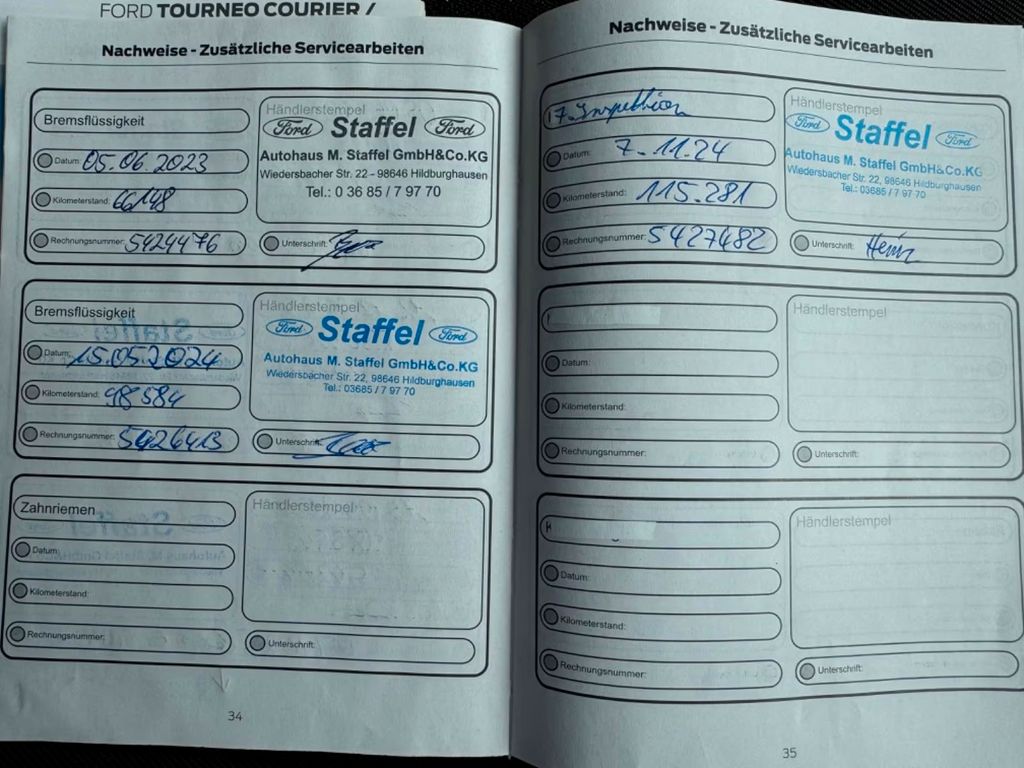 FORD TOURNEO COURIER /
Nachweise - Zusätzliche Servicearbeiten
Bremsflüssigkeit
Datum: 05.06.2023
Kilometerstand: 66148
Rechnungsnummer: 5424476
Händlerstempel
Ford Staffel Ford
Autohaus M. Staffel GmbH&Co.KG
Wiedersbacher Str. 22 - 98646 Hildburghausen
Tel.: 0 36 85 / 7 97 70
Unterschrift:
Bremsflüssigkeit
Datum: 15.05.2024
Kilometerstand: 98584
Rechnungsnummer: 5426413
Händlerstempel
Ford Staffel Ford
Autohaus M. Staffel GmbH&Co.KG
Wiedersbacher Str. 22, 98646 Hildburghausen
Tel.: 03685 / 7 97 70
Unterschrift:
Zahnriemen
Datum:
Kilometerstand:
Rechnungsnummer:
Händlerstempel
Unterschrift:
34
Nachweise - Zusätzliche Servicearbeiten
17. Inspektion
Datum: 7.11.24
Kilometerstand: 115.281
Rechnungsnummer: 5427482
Händlerstempel
Ford Staffel Ford
Autohaus M. Staffel GmbH&Co.KG
Wiedersbacher Str. 22, 98646 Hildburghausen
Tel.: 03685 / 7 97 70
Unterschrift:
Datum:
Kilometerstand:
Rechnungsnummer:
Händlerstempel
Unterschrift:
Datum:
Kilometerstand:
Rechnungsnummer:
Händlerstempel
Unterschrift:
35